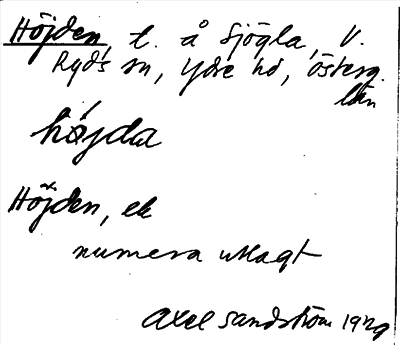 Höjden, t. å Sjögla, V.
Ryds sn, Ydre hd, Österg.
län
höjda
Höjden, ek
numera utlagt
Axel Sandström 1929